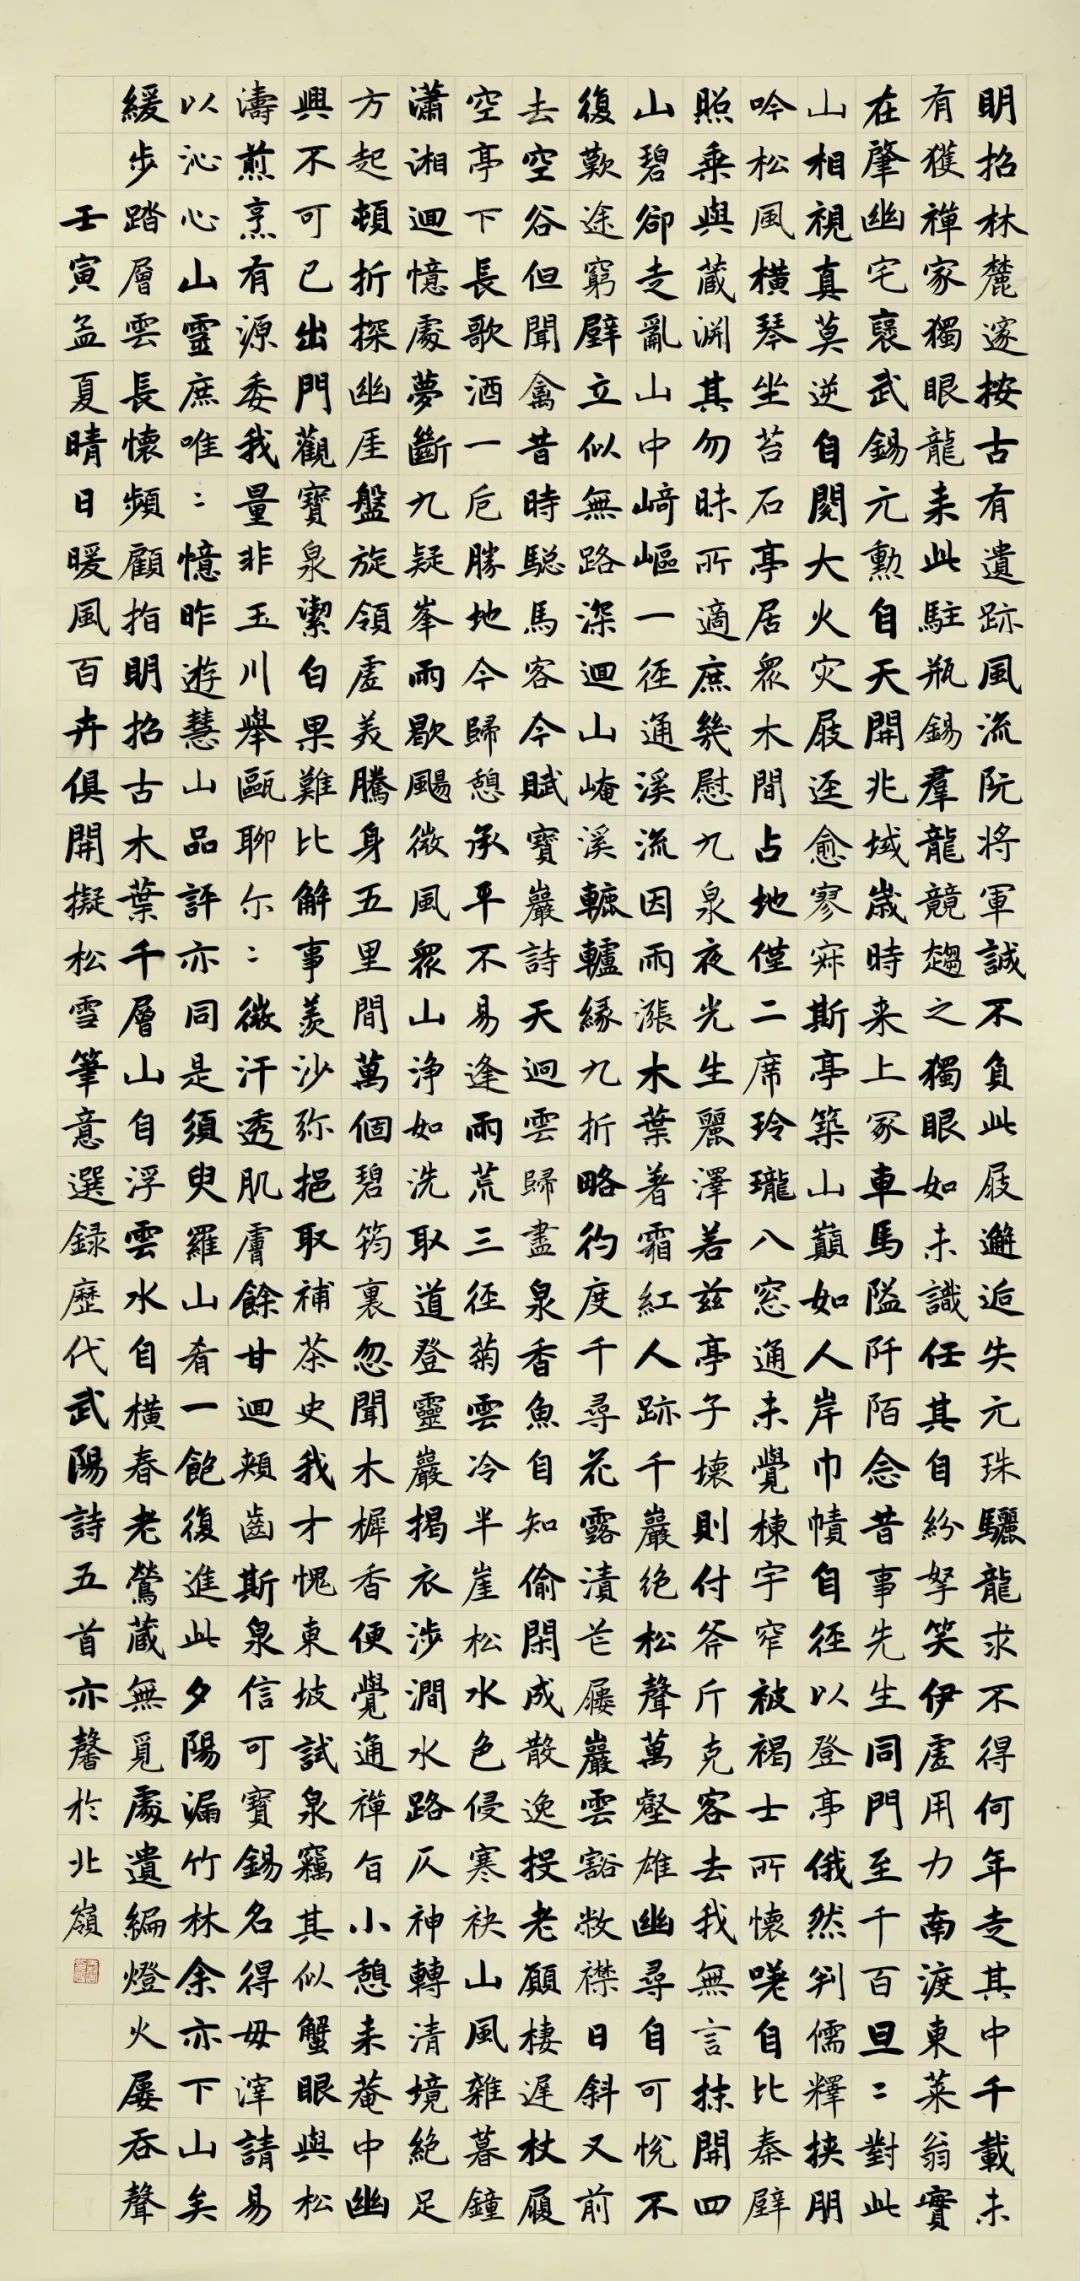 明招林麓邃按古有遺跡風流阮將軍誠不負此屐邂逅失元珠驪龍求不得何年走其中千載未
有獲禪家獨眼龍来此駐瓶錫羣龍競趨之獨眼如未識任其自紛拏笑伊虚用力南渡東萊翁實
在肇幽宅裒武錫元勲自天開兆域歲時来上冢車馬隘阡陌念昔事先生同門至千百旦〻對此
山相視真莫逆自閿大火灾屐迳愈寥寂斯亭築山巔如人岸巾幘自徑以登亭俄然判儒釋挟朋
吟松風横琴坐苔石亭居眾木間占地僅二席玲瓏八窓通未覺棟宇窄被褐士所懷嘆自比秦璧
照乘與蔵渊其勿昧所適庶幾慰九泉夜光生麗澤若兹亭子壊則付斧斤克客去我無言抹開四
山碧卻走亂山中崎嶇一徑通溪流因雨漲木葉著霜紅人跡千巖绝松聲萬壑雄幽尋自可悅不
復歎途窮壁立似無路深迴山崦溪轆轤緣九折略彴度千尋花露漬芒屨巖雲豁敝襟日斜又前
去空谷但聞禽昔時驄馬客今賦寶巖詩天迥雲歸盡泉香魚自知偷閑成散逸投老願棲遲杖履
空亭下長歌酒一卮勝地今歸憩承平不易逢雨荒三徑菊雲冷半崖松水色侵寒袂山風雜暮鐘
瀟湘迴憶處夢斷九疑峯雨歇颸微風眾山浄如洗取道登靈巖揭衣涉澗水路仄神轉清境絶足
方起頓折探幽厓盤旋領虛美騰身五里間萬個碧筠裏忽聞木樨香便覺通禅旨小憩来菴中幽
興不可已出門觀寶泉潔白果難比解事羨沙弥挹取補茶史我才愧東坡試泉竊其似蟹眼與松
濤煎烹有源委我量非玉川舉甌聊尓〻微汗透肌膚餘甘迴頰齒斯泉信可寶錫名得毋滓請易
以沁心山靈庶唯〻憶昨遊慧山品評亦同是須臾羅山肴一飽復進此夕陽漏竹林余亦下山矣
緩步踏層雲長懷頻顧指明招古木葉千層山自浮雲水自横春老鶯蔵無覓處遺編燈火屡吞聲
壬寅孟夏晴日暖風百卉俱開擬松雪筆意選録歷代武陽詩五首亦馨於北嶺